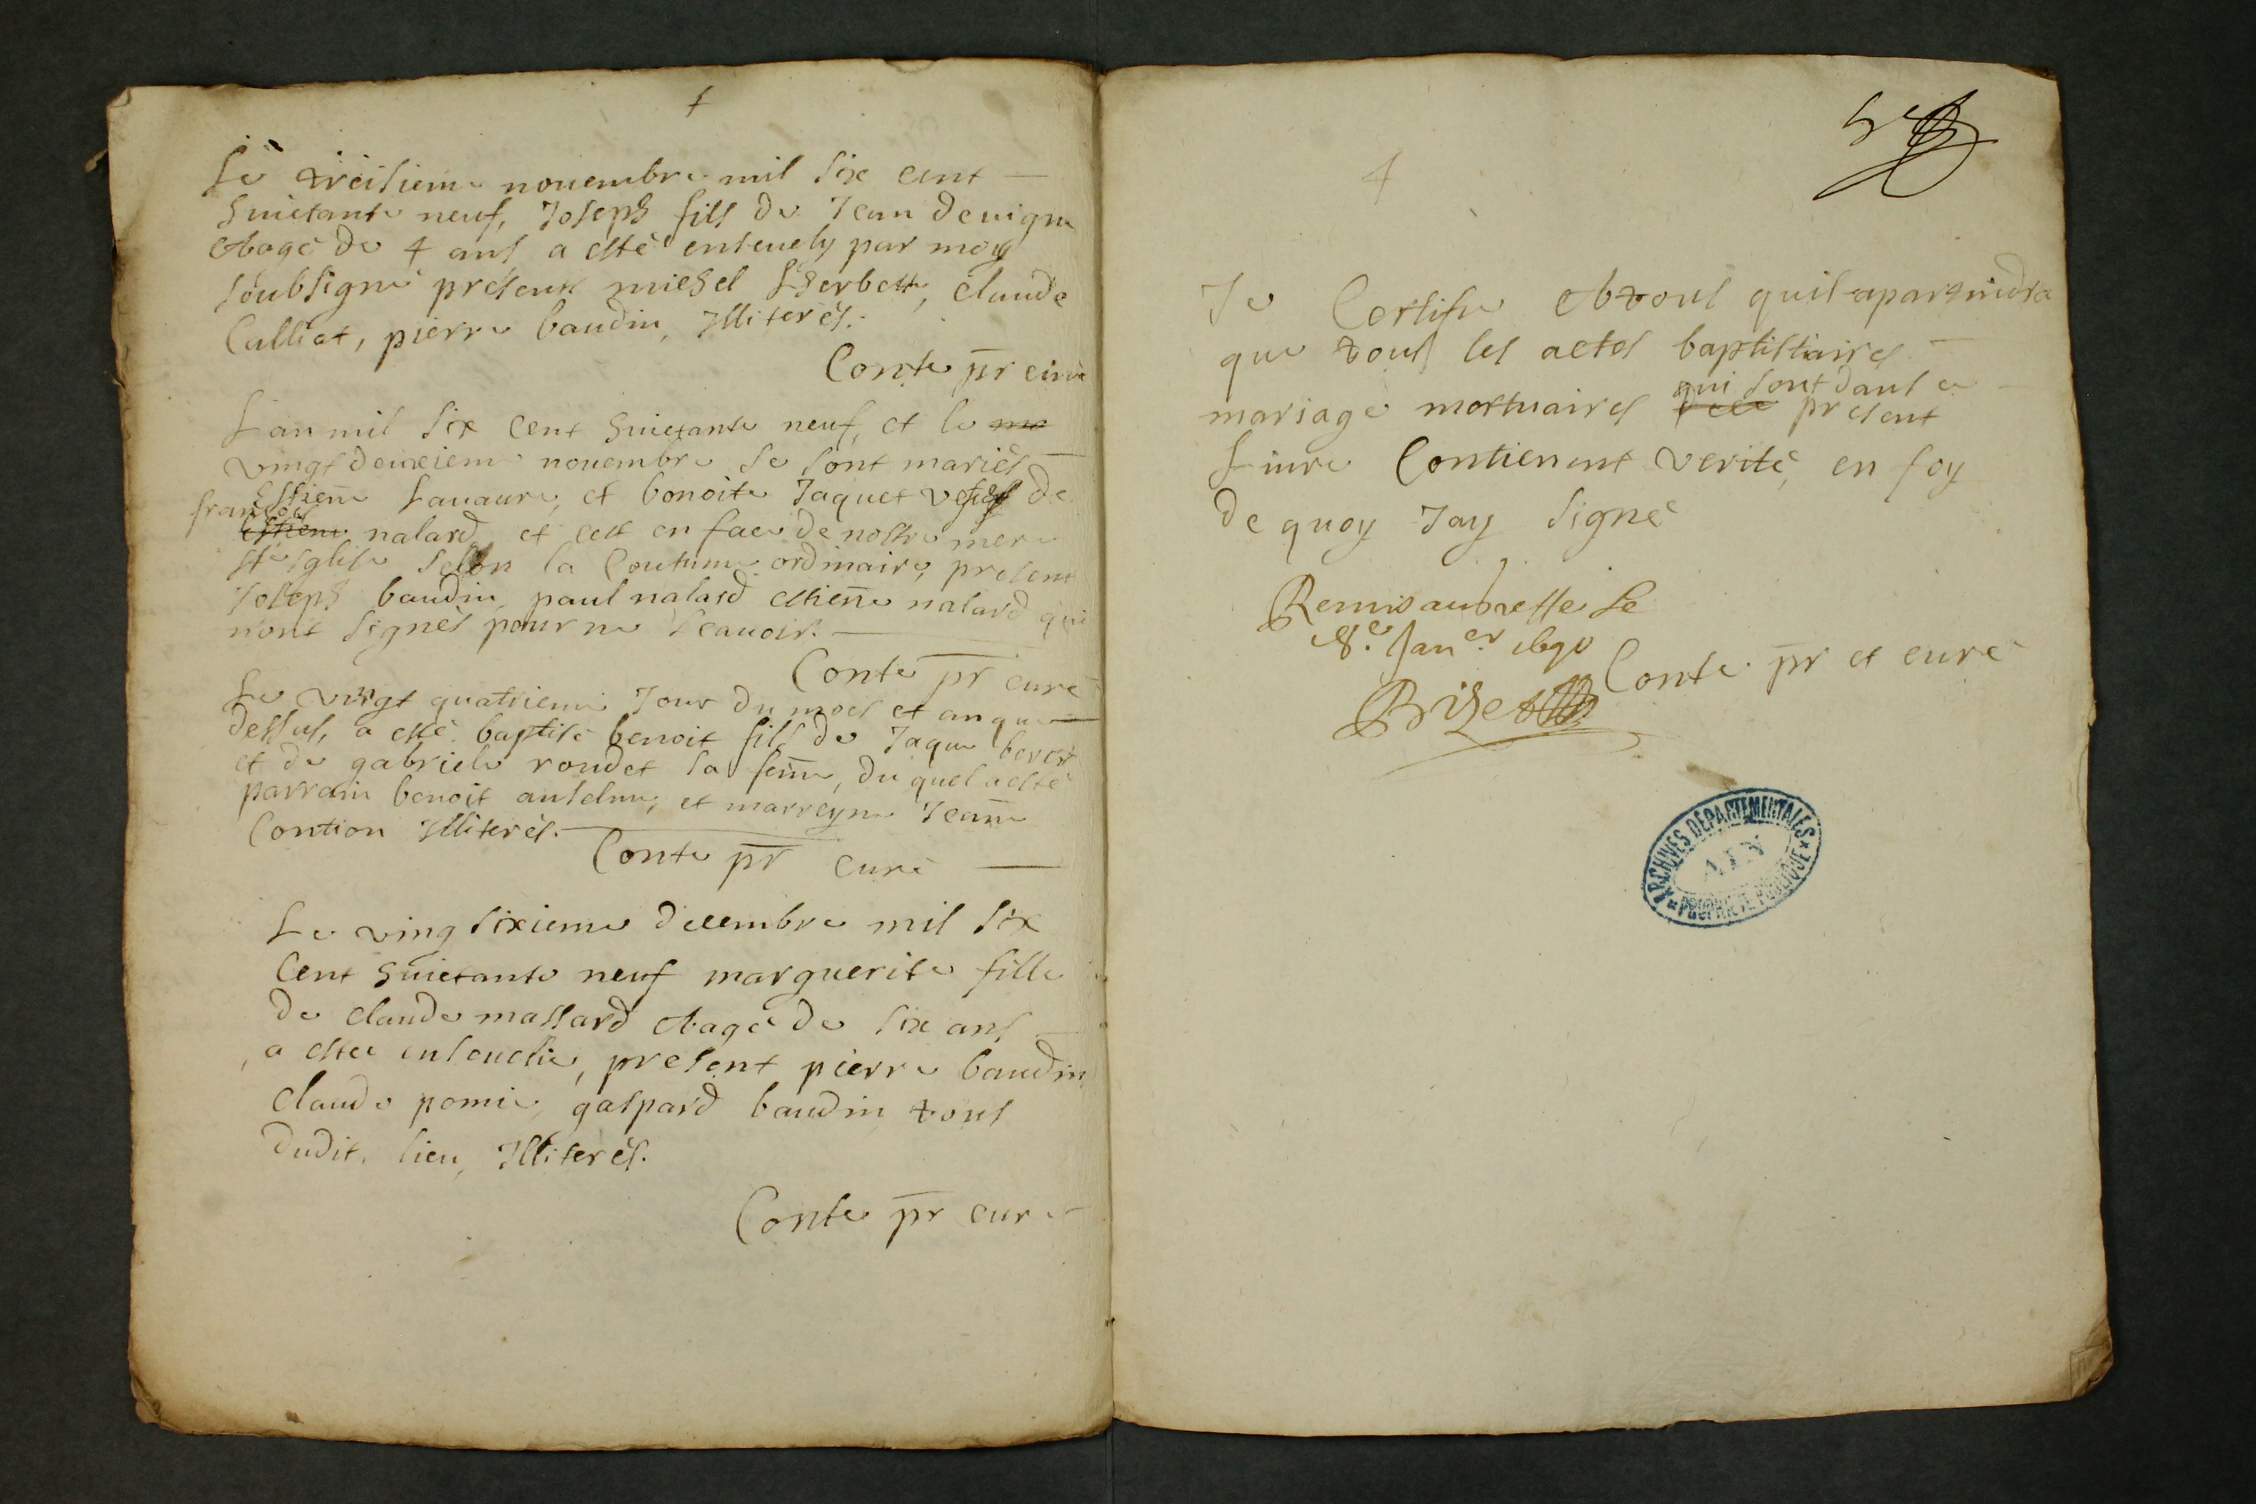 Le treisieme nouembre mil six cent
huictante neuf, Joseph fils de Jean devigne
abagé de 4 ans a esté enseuely par moy
soubsigné presens michel Lherbette, claude
Culliat, pierre baudin, Illiterés.
Conte pr curé
Lan mil six cent huictante neuf, et le
vingt deuxieme nouembre se sont mariés
Estiene Lauaure, et benoite Jaquet vefue de
françois nalard, et cest en face de nostre mere
ste esglise selon la Coutume ordinaire, present
Joseph baudin, paul nalard estiene nalard qui
n'ont signés pour ne scauoir.
Conte pr curé
Le vingt quatrieme Jour du mois et an que
dessus, a esté baptisé benoit fils de Jaque
et de gabriele roudet sa feme, du quel a esté
parrain benoit anselme, et marreyne Jeane
Contion Illiterés.
Conte pr curé
Le ving sixieme decembre mil six
cent huictante neuf marguerite fille
de claude massard abagé de six ans
a estee enseuelie, present pierre baudin
claude pomie, gaspard baudin tous
dudit lieu, Illiterés.
Conte pr curé
4
Je Certifie abtous quil apartiendra
que tous les actes baptistaires
qui sont dans ce
mariage mortuaires present
Liure Contienent verité, en foy
de quoy Jay signé
Remis au greffe le
8e Janer 1690
Conte pr et curé
Bizet
ARCHIVES DÉPARTEMENTALES
AIN
PROPRIÉTÉ PUBLIQUE